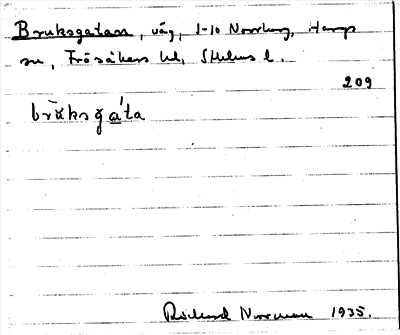 Bruksgatan, väg, 1-10 Norrberg, Hargs
sn, Frösåkers hd, Sthlms l.
209
brùksga̲´ta
Rickard Norrman 1935.